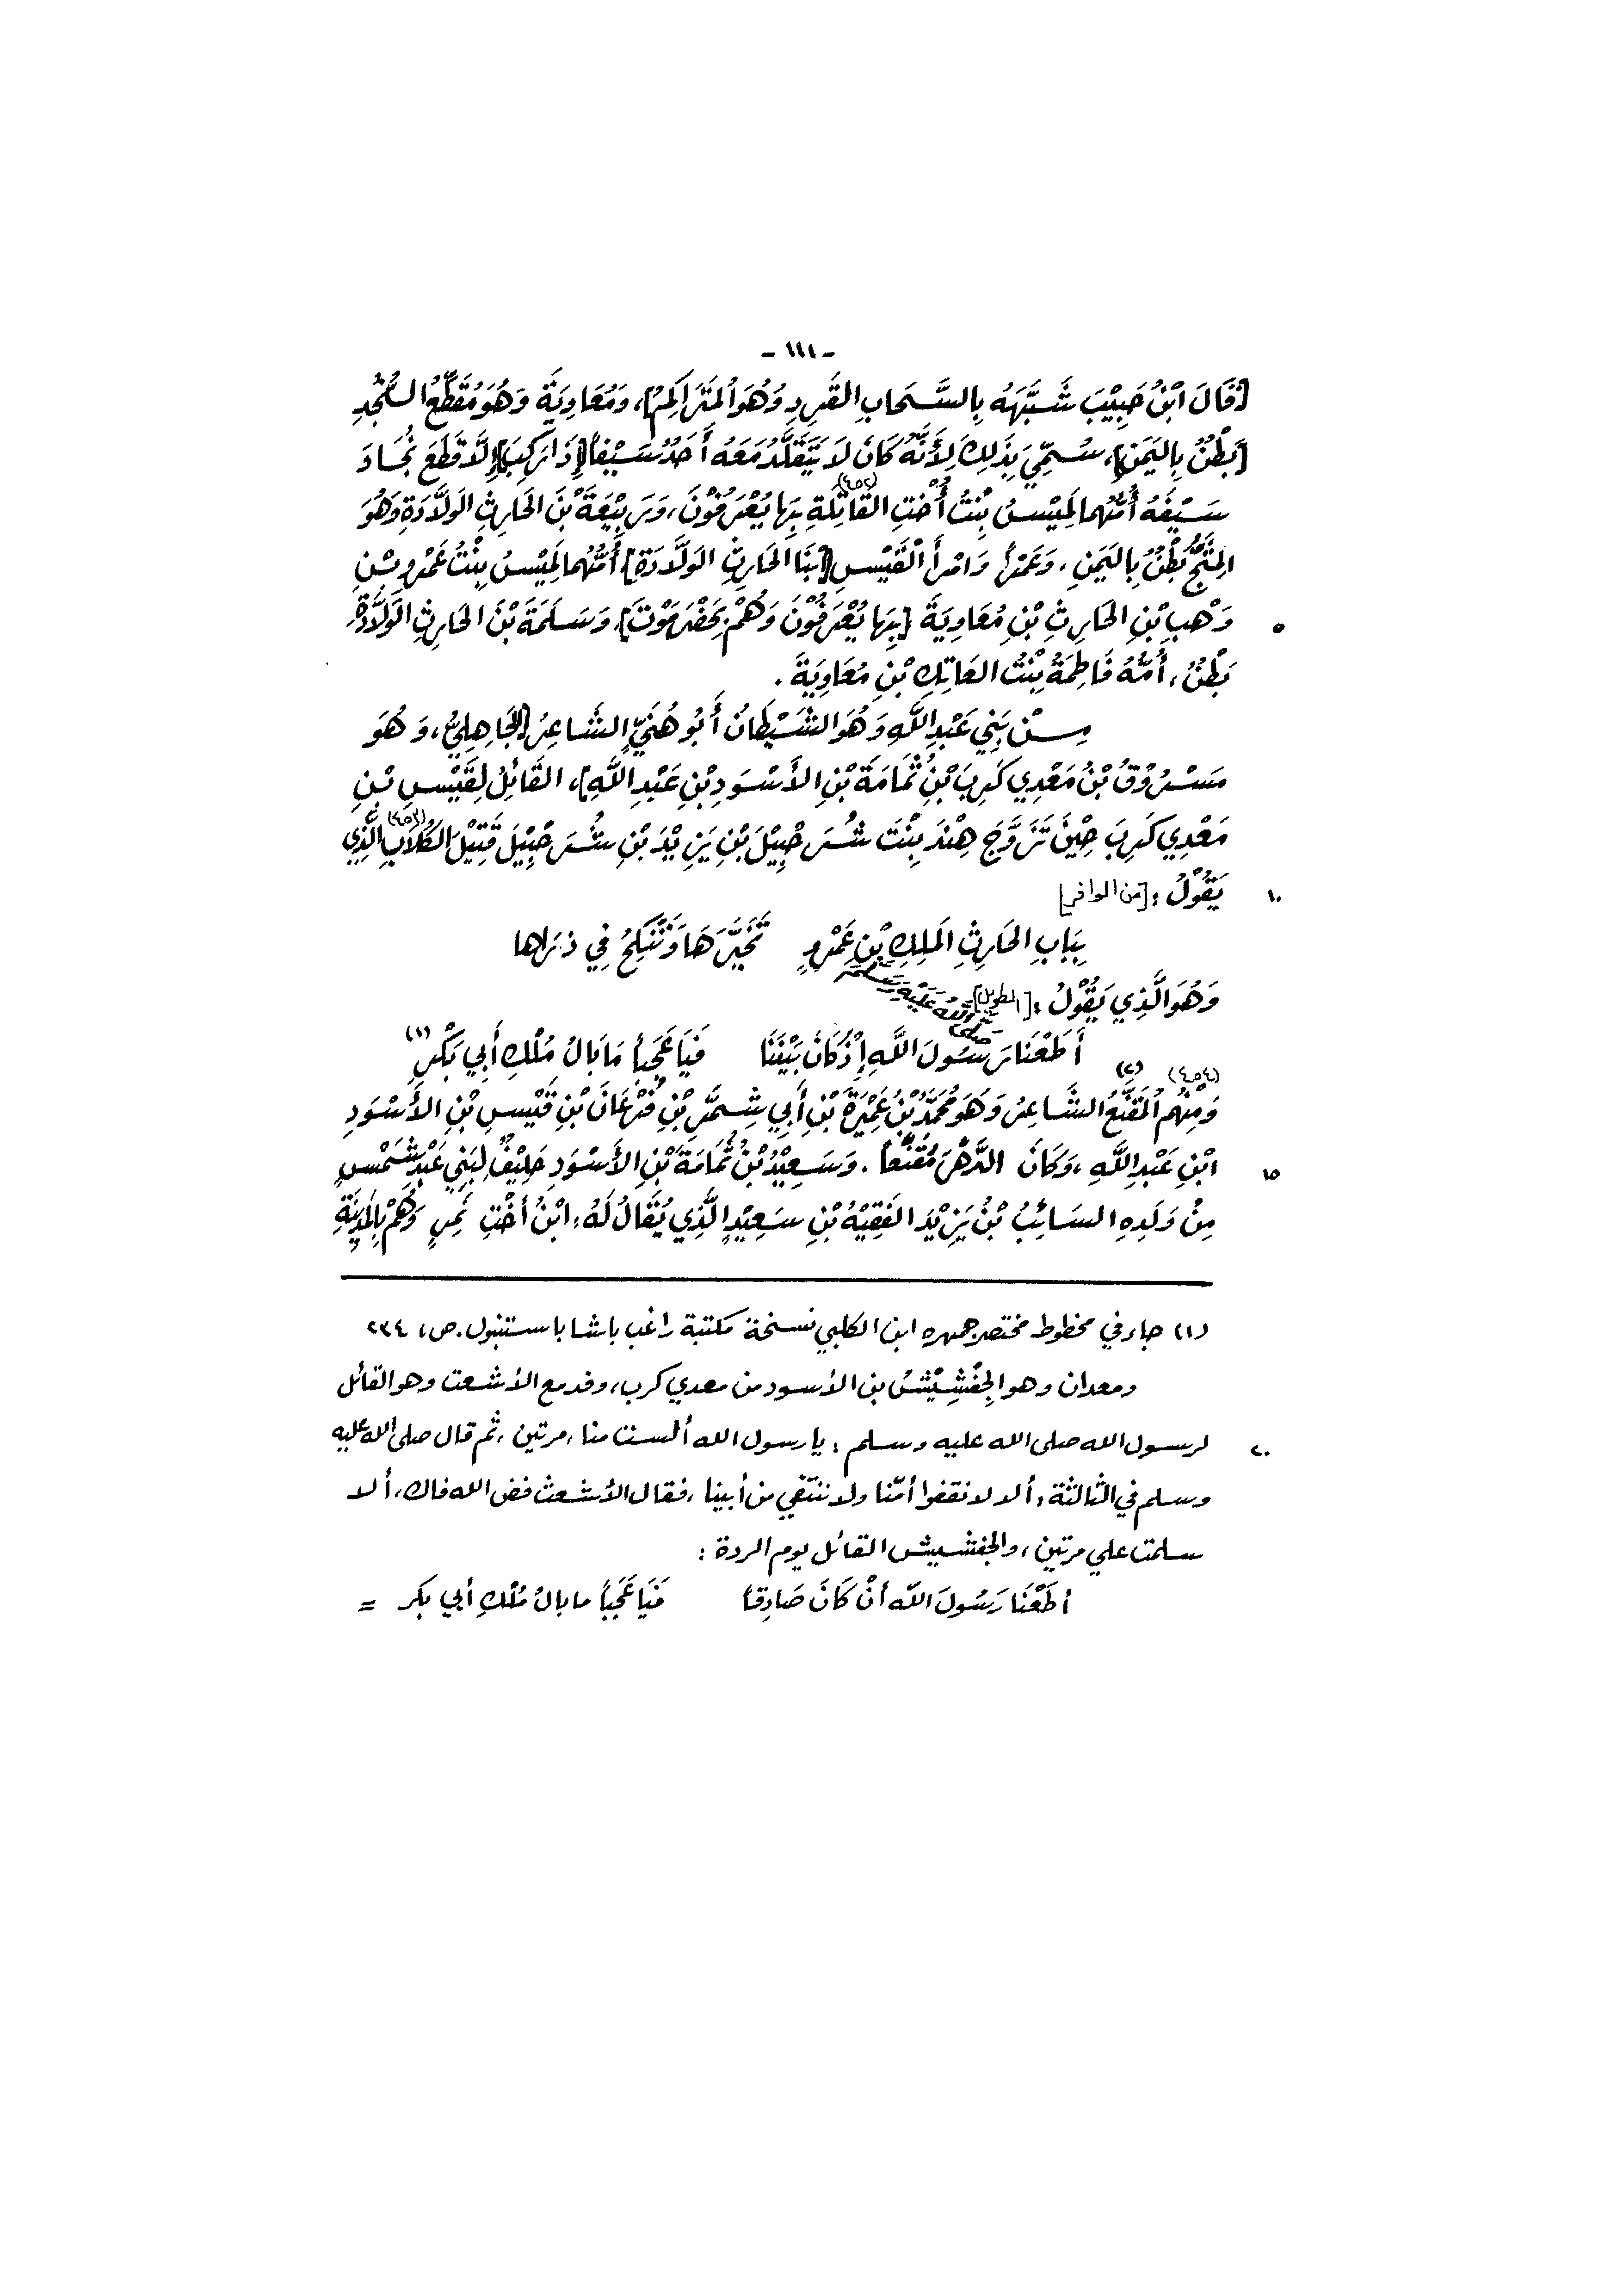 - ١١١ -
[قَالَ ابْنُ حَبِيْبَ شَبَّهَهُ بِالسَّحَابِ القَرِدِ وَهُوَ المُتَرَاكِمُ]، وَمُعَاوِيَةَ وَهُوَ مُقَطِّعُ النُّجُدِ
[بَطْنٌ بِاليَمَنِ]، سُمِّيَ بِذَلِكَ لِأَنَّهُ كَانَ لاَ يَتَقَلَّدُ مَعَهُ أَحَدٌ سَيْفاً [إِذَا رَكِبَ] إِلَّا قَطَعَ نُجَادَ
سَيْفِهُ أُمُّهُما لَمِيْسُ بِنْتُ أُخْتِ القَاتِلَةِ (٤٥٢) بِهَا يُعْرَفُوْنَ، وَرَبِيْعَةَ بْنَ الحَارِثِ الوَلَّادَةِ وَهُوَ
المِتَّجُّ بَطْنٌ بِاليَمَنِ، وَعَمْراً وَامْرأَ القَيْسِ [ابْنَا الحَارِثِ الوَلَّادَةِ] أُمُّهُما لَمِيْسُ بِنْتُ عَمْرِو بْنِ
وَهْبِ بْنِ الحَارِثِ بْنِ مُعَاوِيَةَ [بِهَا يُعْرَفُوْنَ وَهُمْ بِحَضْرَمَوْتَ]، وَسَلَمَةَ بْنَ الحَارِثِ الوَلَّادَةِ ٥
بَطْنٌ، أُمُّهُ فَاطِمَةُ بِنْتُ العَاتِكِ بْنِ مُعَاوِيَةَ.
مِنْ بَنِي عَبْدِ اللَّهِ وَهُوَ الشَّيْطَانُ أَبُو هُنَيٍّ الشَّاعِرُ [الجَاهِلِيُّ، وَهُوَ
مَسْرُوْقُ بْنُ مَعْدِي كَرِبَ بْنِ ثُمَامَةَ بْنِ الأَسْوَدِ بْنِ عَبْدِ اللَّهِ]، القَائِلُ لِقَيْسِ بْنِ
مَعْدِي كَرِبَ حِيْنَ تَزَوَّجَ هِنْدَ بِنْتَ شُرَحْبِيْلَ بْنِ يَزِيْدَ بْنِ شُرَحْبِيْلَ قَتِيْلَ الكُلَابِ (٤٥٣) الَّذِي
يَقُوْلُ: [من الوافر] ١٠
بِبَابِ الحَارِثِ المَلِكِ بْنِ عَمْرٍو تَخَيَّرَهَا وَتَنْكِحُ فِي ذَرَاها
وَهُوَ الَّذِي يَقُوْلُ: [الطويل] صَلَّى اللَّهُ عَلَيْهِ وَسَلَّمَ
أَطَعْنَا رَسُولَ اللَّهِ إِذْ كَانَ بَيْنَنَا فَيَا عَجَباً مَا بَالُ مُلْكِ أَبِي بَكْرِ (١)
وَمِنْهُم (٤٥٤) المُقَنَّعُ (٢) الشَّاعِرُ وَهُوَ مُحَمَّدُ بْنُ عَمِيْرَةَ بْنِ أَبِي شِمَّرِ بْنِ فُرْعَانَ بْنِ قَيْسِ بْنِ الأَسْوَدِ
ابْنِ عَبْدِ اللَّهِ، وَكَانَ الدَّهْرَ مُقَنَّعاً. وَسَعِيْدُ بْنُ ثُمَامَةَ بْنِ الأَسْوَدِ حَلِيْفٌ لِبَنِي عَبْدِ شَمْسٍ ١٥
مِنْ وَلَدِهِ السَائِبُ بْنُ يَزِيْدَ الفَقِيْهُ بْنِ سَعِيْدٍ الَّذِي يُقَالُ لَهُ: ابْنُ أُخْتِ نَمِرٍ وَهُمْ بِالمَدِيْنَةِ
(١) جاء في مخطوط مختصر جمهرة ابن الكلبي نسخة مكتبة راغب باشا باستنبول. ص، ٢٣٤
ومعدان وهو الجِفْشِيْشُ بن الأسود من معدي كرب، وفد مع الأشعث وهو القائل
لرسول الله صلى الله عليه وسلم: يا رسول الله ألست منا، مرتين، ثم قال صلى الله عليه ٢٠
وسلم في الثالثة: ألا لا نقفوا أمّنا ولا ننتفي من أبينا، فقال الأشعث فض الله فاك، ألا
سلمت علي مرتين، والجفشيش القائل يوم الردة:
أطَعْنَا رَسُولَ اللّه أنْ كَانَ صَادِقاً فَيَا عَجَباً ما بالُ مُلْكِ أبي بكر =